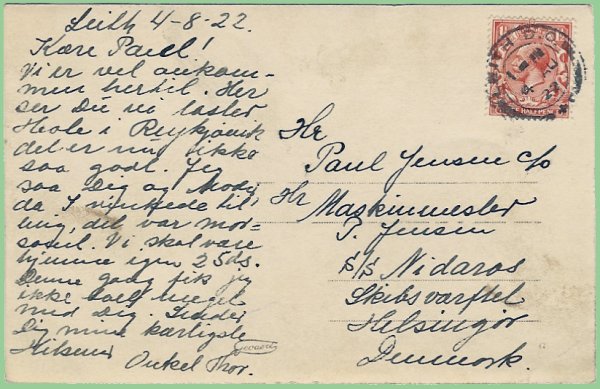 Leith 4-8-22.
Kære Paul!
Vi er vel ankom-
men hertil. Her
ser Du vi laster
Heste i Reykjavik
det er nu ikke
saa godt. Jeg
saa Dig og Mody
da I vinkede til
mig, det var mor-
somt. Vi skal være
hjemme igen 25ds.
Denne gang fik jeg
ikke talt meget
med Dig. Sender
Dig mine kærligste
Hilsener
Onkel Thor.
Gevaert
Hr
Paul Jensen c/o
Hr Maskinmester
P. Jensen
S/S Nidaros
Skibsværftet
Helsingør
Denmark.
LEITH D.O.
4 AU
22
HALFPEN